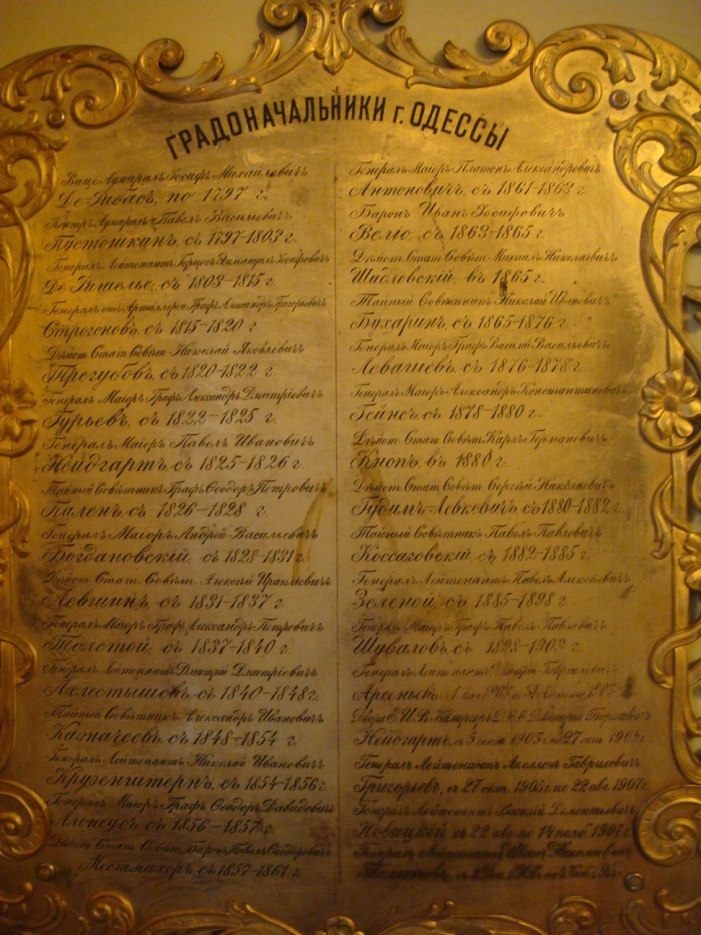 ГРАДОНАЧАЛЬНИКИ г. ОДЕССЫ
Вице Адмиралъ Іосифъ Михайловичъ
Де Рибасъ, по 1797 г.
Контръ Адмиралъ Павелъ Васильевичъ
Пустошкинъ, съ 1797-1803 г.
Генералъ Лейтенантъ Герцогъ Эммануилъ Іосифовичъ
Де Ришелье, съ 1803-1815 г.
Генералъ отъ Артиллеріи Графъ Александръ
Строгоновъ, съ 1815-1820 г.
Дѣйст. Стат. Совѣт. Николай Яковлевичъ
Трегубовъ, съ 1820-1822 г.
Генералъ Маіоръ Графъ Александръ Дмитріевичъ
Гурьевъ, съ 1822-1825 г.
Генералъ Маіоръ Павелъ Ивановичъ
Нейдгартъ, съ 1825-1826 г.
Тайный Совѣтникъ Графъ Ѳеодоръ Петровичъ
Паленъ, съ 1826-1828 г.
Генералъ Маіоръ Андрей Васильевичъ
Богдановскій, съ 1828-1831 г.
Дѣйст. Стат. Совѣт. Алексѣй Иракліевичъ
Левшинъ, съ 1831-1837 г.
Генералъ Маіоръ Графъ Александръ Петровичъ
Толстой, съ 1837-1840 г.
Генералъ Лейтенантъ Дмитрій Дмитріевичъ
Ахлестышевъ, съ 1840-1848 г.
Тайный Совѣтникъ Александръ Ивановичъ
Казначеевъ, съ 1848-1854 г.
Генералъ Лейтенантъ Николай Ивановичъ
Крузенштернъ, съ 1854-1856 г.
Генералъ Маіоръ Графъ Ѳеодоръ Давидовичъ
Алопеусъ, съ 1856-1857 г.
Дѣйст. Стат. Совѣт. Баронъ Павелъ Ѳеодоровичъ
Местмахеръ, съ 1857-1861 г.
Генералъ Маіоръ Платонъ Александровичъ
Антоновичъ, съ 1861-1863 г.
Баронъ Иванъ Іосифовичъ
Веліо, съ 1863-1865 г.
Дѣйст. Стат. Совѣт. Михаилъ Николаевичъ
Шидловскій, въ 1865 г.
Тайный Совѣтникъ Николай Ивановичъ
Бухаринъ, съ 1865-1876 г.
Генералъ Маіоръ Графъ Василій Васильевичъ
Левашевъ, съ 1876-1878 г.
Генералъ Маіоръ Александръ Константиновичъ
Гейнсъ, съ 1878-1880 г.
Дѣйст. Стат. Совѣт. Карлъ Германовичъ
Кнопъ, въ 1880 г.
Дѣйст. Стат. Совѣт. Сергѣй Николаевичъ
Гудимъ-Левковичъ, съ 1880-1882 г.
Тайный Совѣтникъ Павелъ Павловичъ
Коссаговскій, съ 1882-1885 г.
Генералъ Лейтенантъ Павелъ Алексѣевичъ
Зеленой, съ 1885-1898 г.
Генералъ Маіоръ Графъ Павелъ Павловичъ
Шуваловъ, съ 1898-1903 г.
Генералъ Лейтенантъ Дмитрій Гавриловичъ
Арсеньевъ,
Двора Е. И. В. Камергеръ Д. С. С. Дмитрій Борисовичъ
Нейдгартъ, съ 3 1903 по 27 окт. 1905 г.
Генералъ Лейтенантъ Гавриловичъ
Григорьевъ, съ 27 окт. 1905 г. по 22 1907 г.
Генералъ Лейтенантъ Василій Дементьевичъ
Новицкій съ 22 по 14 1907 г.
Генералъ Иванъ Николаевичъ
Толмачевъ, съ